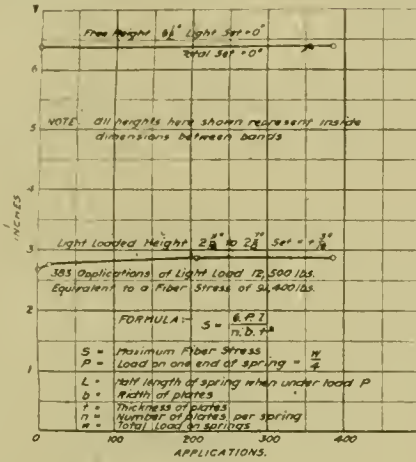 Free Height Light Set = 0"
Total Set = 0"
6
NOTE. all heights here shown represent inside
dimensions between bands
5
4
INCHES
3
Light Loaded Height to Set =
383 Applications of Light Load 12,500 lbs.
Equivalent to a Fiber Stress of lbs.
2
FORMULA:- S = 6.P.l / n.b.t²
S = Maximum Fiber Stress
P = Load on one end of spring = W/4
1
L = Half length of spring when under load P
b = Width of plates
t = Thickness of plates
n = Number of plates per spring
= Total Load on springs
0 100 200 300 400
APPLICATIONS.